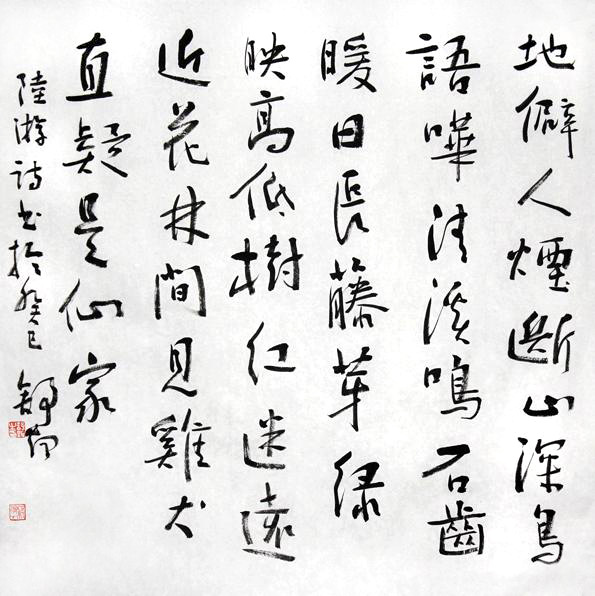 地僻人煙斷山深鳥
語嘩清溪鳴石齒
暖日長藤芽綠
映高低樹紅迷遠
近花林間見雞犬
直疑是仙家
陸游詩書於癸巳